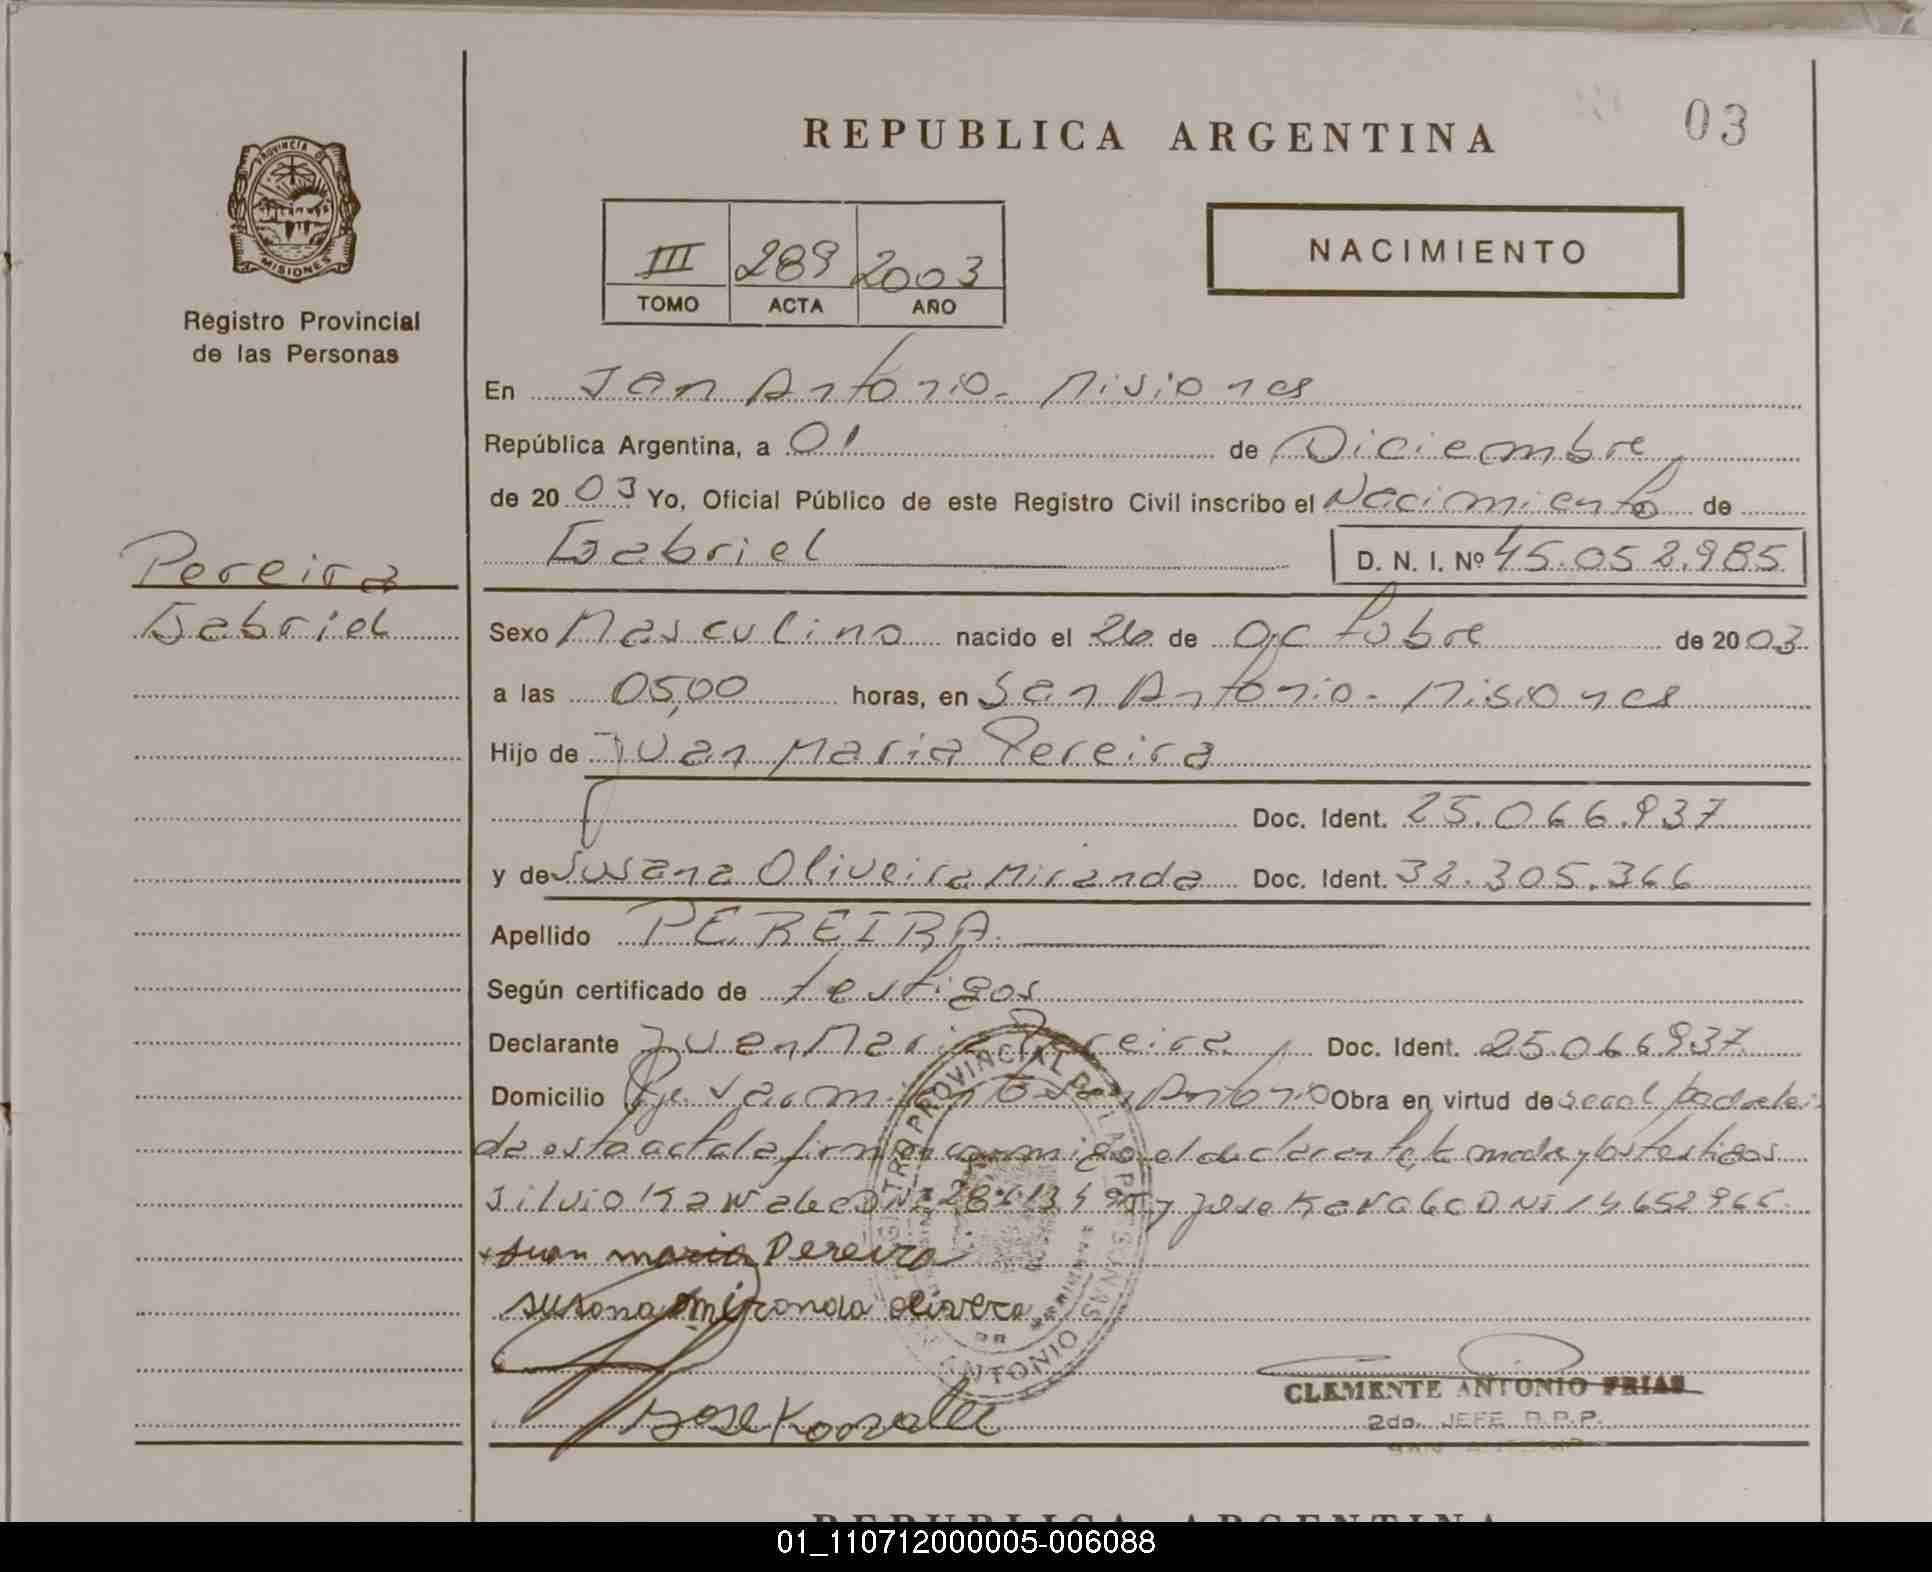 REPUBLICA ARGENTINA
03
PROVINCIA DE
MISIONES
Registro Provincial
de las Personas
III 289 2003
TOMO ACTA AÑO
NACIMIENTO
En San Antonio - Misiones
República Argentina, a 01 de Diciembre
de 2003 Yo, Oficial Público de este Registro Civil inscribo el Nacimiento de
Gabriel D. N. I. Nº 45.052.985
Pereira
Gabriel
Sexo Masculino nacido el 26 de octubre de 2003
a las 05,00 horas, en San Antonio - Misiones
Hijo de Juan Maria Pereira
Doc. Ident. 25.066.937
y de Susana Oliveira Miranda Doc. Ident. 38.305.366
Apellido PEREIRA
Según certificado de testigos
Declarante Juan Maria Pereira Doc. Ident. 25.066937
Domicilio Pje Sarmiento San Antonio Obra en virtud de
de esta acta la firman conmigo el declarante, la madre y los testigos
Silvio y Jose DNI 14652965
Juan maria Pereira
susana miranda olivera
Jose
CLEMENTE ANTONIO FRIAS
2do. JEFE R.P.P.
SAN ANTONIO
REGISTRO PROVINCIAL DE LAS PERSONAS
SAN ANTONIO
REPUBLICA ARGENTINA
01_110712000005-006088